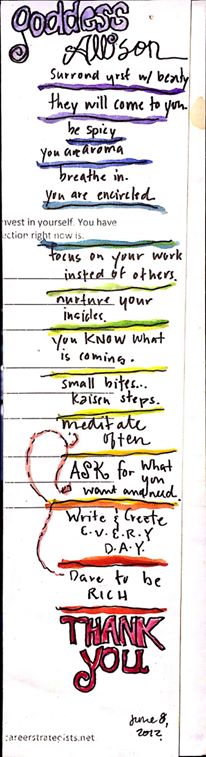 goddess
Allison
Surrond yrsf w/ beauty
they will come to you.
be spicy
you are aroma
breathe in.
you are encircled
nvest in yourself. You have
ection right now is.
focus on your work
insted of others.
nurture your
insides.
you KNOW what
is coming.
small bites...
Kaisen steps.
meditate
often
ASK for what
you
want and need.
Write & Create
E.V.E.R.Y
D.A.Y.
Dare to be
RICH
THANK
YOU
June 8,
2012
careerstrategists.net